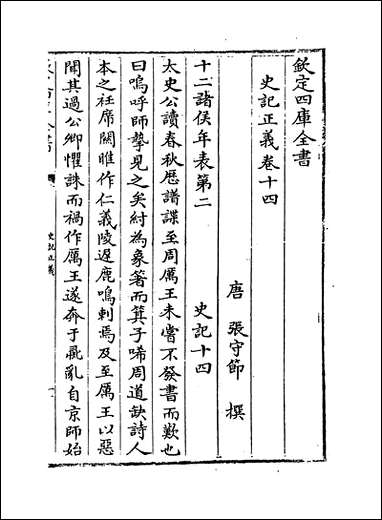 欽定四庫全書
史記正義卷十四
唐 張守節 撰
十二諸侯年表第二 史記十四
太史公讀春秋歷譜諜至周厲王未嘗不發書而歎也
曰嗚呼師摯見之矣紂為象箸而箕子唏周道缺詩人
本之袵席關雎作仁義陵遲鹿鳴刺焉及至厲王以惡
聞其過公卿懼誅而禍作厲王遂奔于彘亂自京師始
史記正義